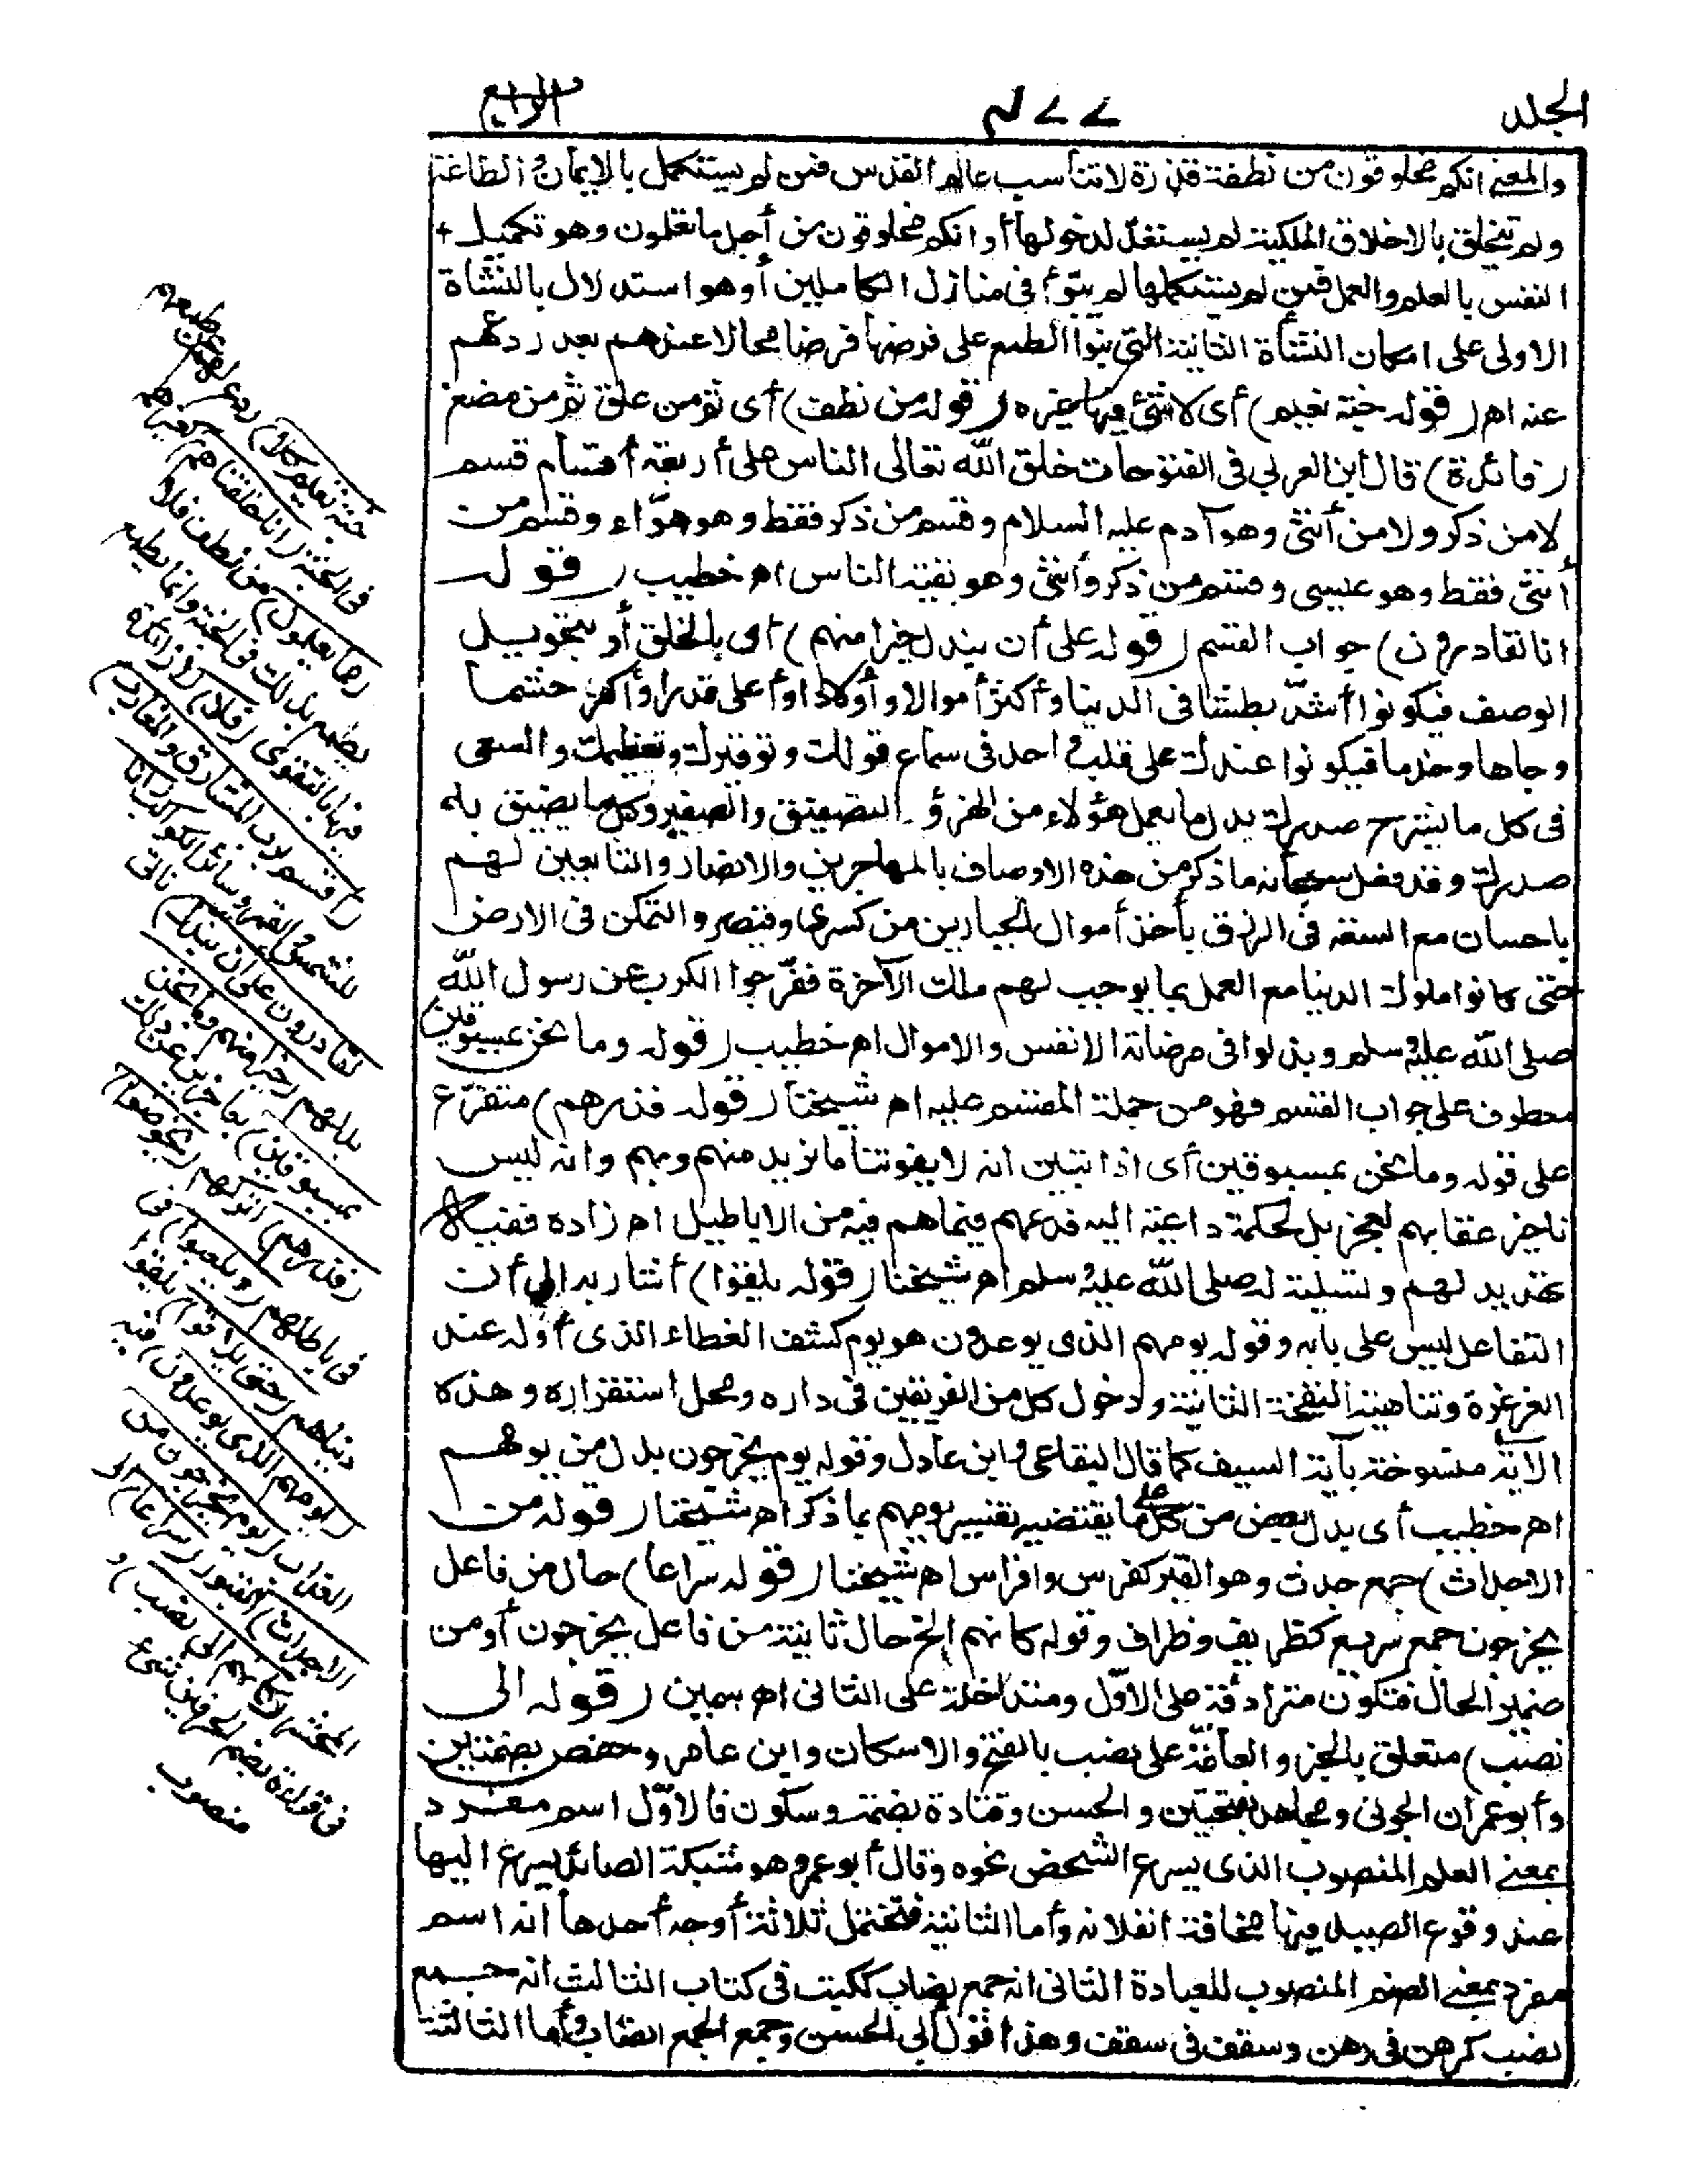 الجلد ٤٢٢ الرابع
والمعنى انكم مخلوقون من نطفة قذرة لا تناسب عالم القدس فمن لم يستكمل بالايمان والطاعة
ولم يتخلق بالاخلاق الملكية لم يستعدّ لدخولها أو انكم مخلوقون من أجل ما تعلمون وهو تكميل
النفس بالعلم والعمل فمن لم يستكملها لم يتبوّأ فى منازل الكاملين أو هو استدلال بالنشأة
الاولى على امكان النشأة الثانية التى بنوا الطمع على فرضها فرضا محالا عندهم بعد ردعهم
عنه اهـ (قوله جنة نعيم) أى لا شئ فيها غيره (قوله من نطف) أى ثم من علق ثم من مضغ
(فائدة) قال ابن العربي فى الفتوحات خلق الله تعالى الناس على أربعة أقسام قسم
لا من ذكر ولا من أنثى وهو آدم عليه السلام وقسم من ذكر فقط وهو حوّاء وقسم من
أنثى فقط وهو عيسى وقسم من ذكر وأنثى وهو بقية الناس اهـ خطيب (قوله
انا لقادرون) جواب القسم (قوله على أن نبدل خيرا منهم) أى بالخلق أو بتحويل
الوصف فيكونوا أشدّ بطشا فى الدنيا وأكثر أموالا وأولادا وأعلى قدرا وأكثر حشما
وجاها وخدما فيكونوا عندك على قلب واحد فى سماع قولك وتوقيرك وتعظيمك والسعى
فى كل ما يشرح صدرك بدل ما يعمل هؤلاء من الهزؤ والتصفيق والصفير وكل ما يضيق به
صدرك وقد فعل سبحانه ما ذكر من هذه الاوصاف بالمهاجرين والانصار والتابعين لهم
باحسان مع السعة فى الرزق بأخذ أموال الجبارين من كسرى وقيصر والتمكن فى الارض
حتى كانوا ملوك الدنيا مع العمل بما يوجب لهم ملك الآخرة ففرّجوا الكرب عن رسول الله
صلى الله عليه وسلم وبذلوا فى مرضاته الانفس والاموال اهـ خطيب (قوله وما نحن بمسبوقين)
معطوف على جواب القسم فهو من جملة المقسم عليه اهـ شيخنا (قوله فذرهم) متفرّع
على قوله وما نحن بمسبوقين أى اذا تبين انه لا يفوتنا ما نريد منهم وبهم وانه ليس
تأخير عقابهم لعجز بل لحكمة داعية اليه فدعهم فيما هم فيه من الاباطيل اهـ زاده ففيه
تهديد لهم وتسلية له صلى الله عليه وسلم اهـ شيخنا (قوله يلقوا) أشار به الى أن
التفاعل ليس على بابه وقوله يومهم الذى يوعدون هو يوم كشف الغطاء الذى أوله عند
الغرغرة وتناهيه النفخة الثانية ودخول كل من الفريقين فى داره ومحل استقراره وهذه
الآية منسوخة بآية السيف كما قال البقاعى وابن عادل وقوله يوم يخرجون بدل من يومهم
اهـ خطيب أى بدل بعض من كل على ما يقتضيه تفسير يومهم بما ذكر اهـ شيخنا (قوله من
الاجداث) جمع جدث وهو القبر كفرس وافراس اهـ شيخنا (قوله سراعا) حال من فاعل
يخرجون جمع سريع كظريف وظراف وقوله كانهم الخ حال ثانية من فاعل يخرجون أو من
ضمير الحال فتكون مترادفة على الاوّل ومتداخلة على الثانى اهـ سمين (قوله الى
نصب) متعلق بالخبر والعامّة على نصب بالفتح والاسكان وابن عامر وحفص بضمتين
وأبو عمران الجونى ومجاهد بفتحتين والحسن وقتادة بضمة وسكون فالاوّل اسم مفرد
بمعنى العلم المنصوب الذى يسرع الشخص نحوه وقال أبو عمرو هو شبكة الصائد يسرع اليها
عند وقوع الصيد فيها مخافة انفلاته وأما الثانية فتحتمل ثلاثة أوجه أحدها أنه اسم
مفرد بمعنى الصنم المنصوب للعبادة الثانى انه جمع نصاب ككتب فى كتاب الثالث انه جمع
نصب كرهن فى رهن وسقف فى سقف وهذا قول أبى الحسن وجمع الجمع انصاب وأما الثالثة
جنة نعيم كلا) ردع لهم عن طمعهم
فى الجنة (انا خلقناهم) كغيرهم
(مما يعلمون) من نطف فلا
يطمع بذلك فى الجنة وانما يطمع
فيها بالتقوى (فلا) لا زائدة
(اقسم برب المشارق والمغارب)
للشمس والقمر وسائر الكواكب (انا
لقادرون على ان نبدل) نأتى
بدلهم (خيرا منهم وما نحن
بمسبوقين) بعاجزين عن ذلك
(فذرهم) اتركهم (يخوضوا)
فى باطلهم (ويلعبوا) فى
دنياهم (حتى يلاقوا) يلقوا
(يومهم الذى يوعدون) فيه
العذاب (يوم يخرجون من
الاجداث) القبور (سراعا) الى
المحشر (كانهم الى نصب) و
فى قراءة بضم الحرفين شئ
منصوب